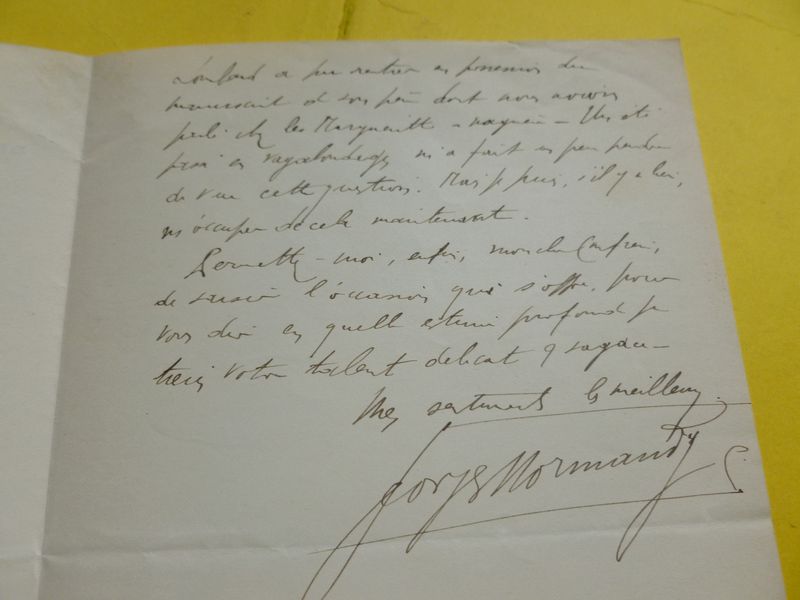 a pu rentrer en possession du
manuscrit de son père dont nous avions
parlé chez les Margueritte – naguère – Un été
passé en vagabondages m'a fait un peu perdre
de vue cette question. Mais je puis, s'il y a lieu,
m'occuper de cela maintenant.
Permettez-moi, enfin, mon cher Confrère,
de saisir l'occasion qui s'offre, pour
vous dire en quelle estime profonde je
tiens votre talent délicat & sagace –
Mes sentiments les meilleurs.
Georges Normandy